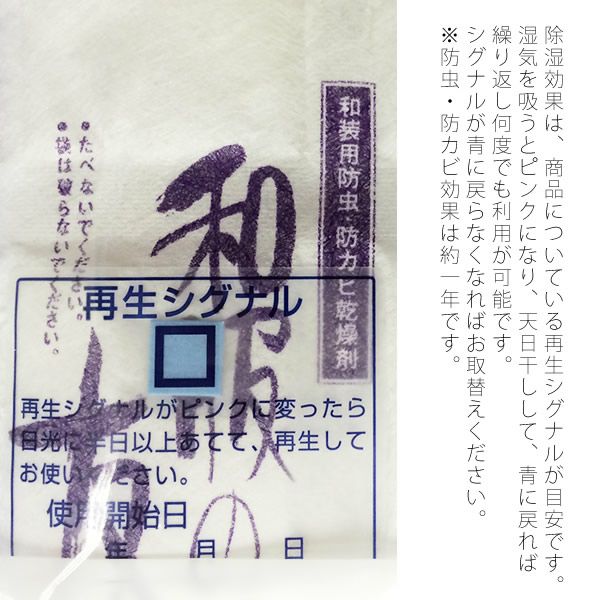 除湿効果は、商品についている再生シグナルが目安です。
湿気を吸うとピンクになり、天日干しして、青に戻れば
繰り返し何度でも利用が可能です。
シグナルが青に戻らなくなればお取替えください。
※防虫・防カビ効果は約一年です。
和装用防虫・防カビ乾燥剤
和服の
•たべないでください。
•袋は破らないでください。
再生シグナル
再生シグナルがピンクに変ったら
日光に半日以上あてて、再生して
お使いください。
使用開始日
年 月 日